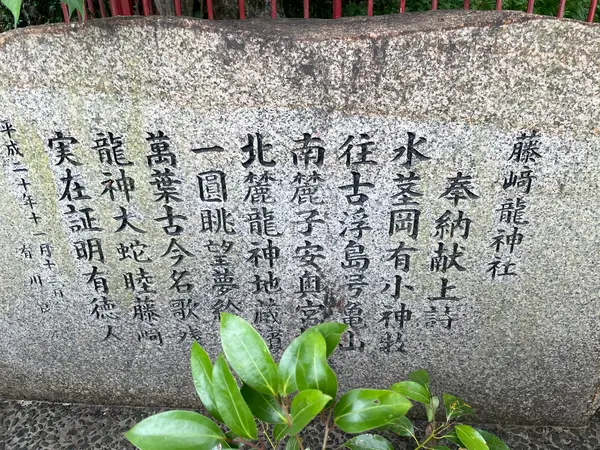 藤﨑龍神社
奉納献上詩
水茎岡有小神教
往古浮島号亀山
南麓子安奥宮
北麓龍神地蔵
一圓眺望夢絵
萬葉古今名歌残
龍神大蛇睦藤﨑
実在証明有徳人
平成二十年十一月十三日
有川